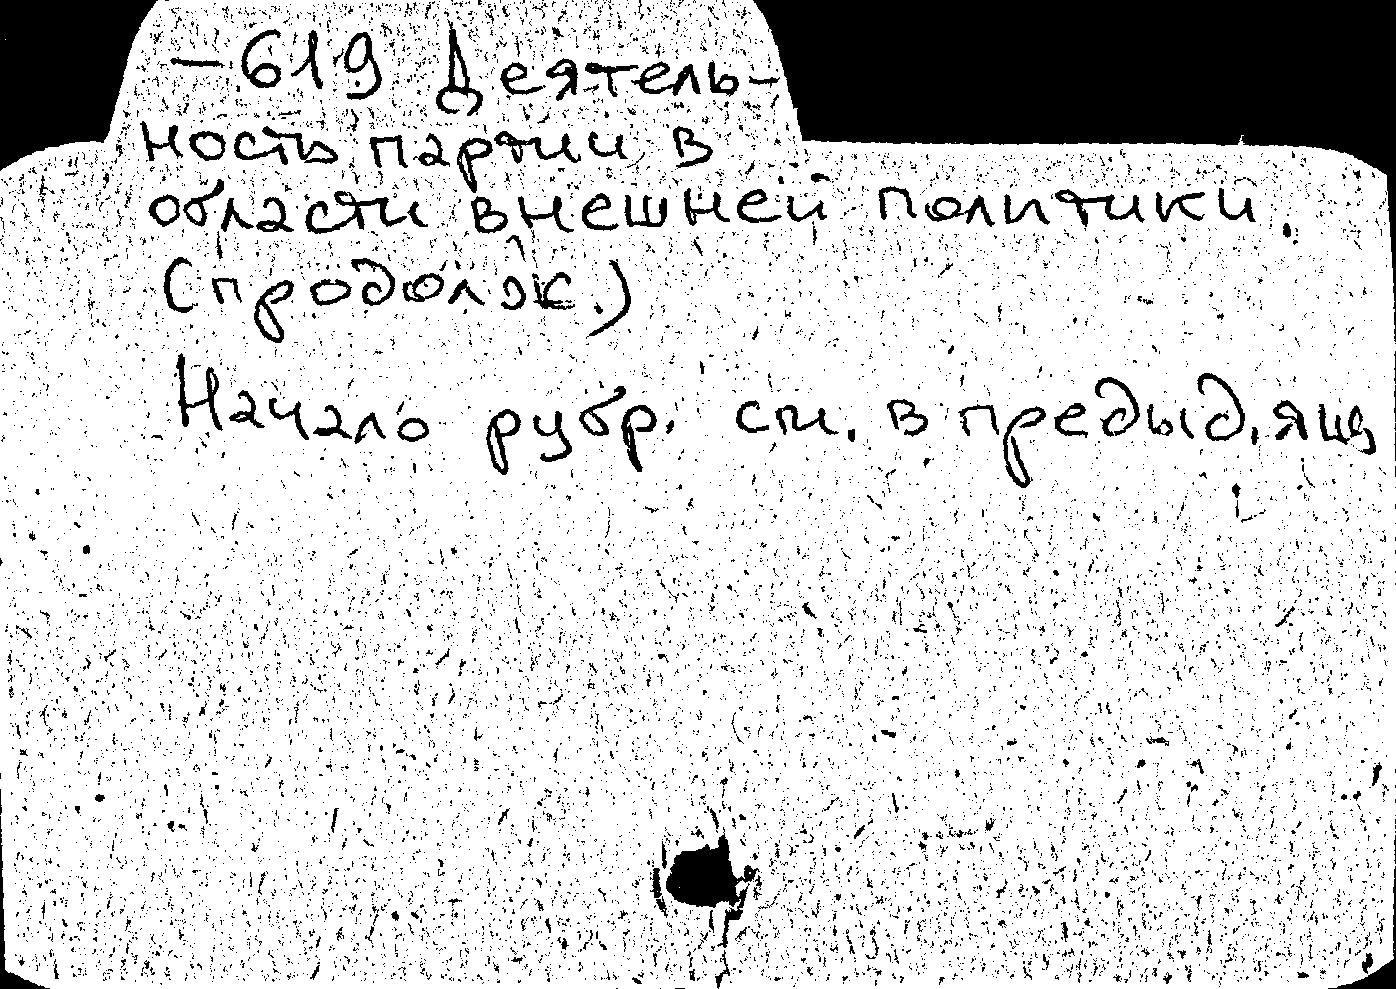 —619 Деятель-
ность партии в
области внешней политики.
(продолж.)
Начало рубр. см. в предыд. ящ